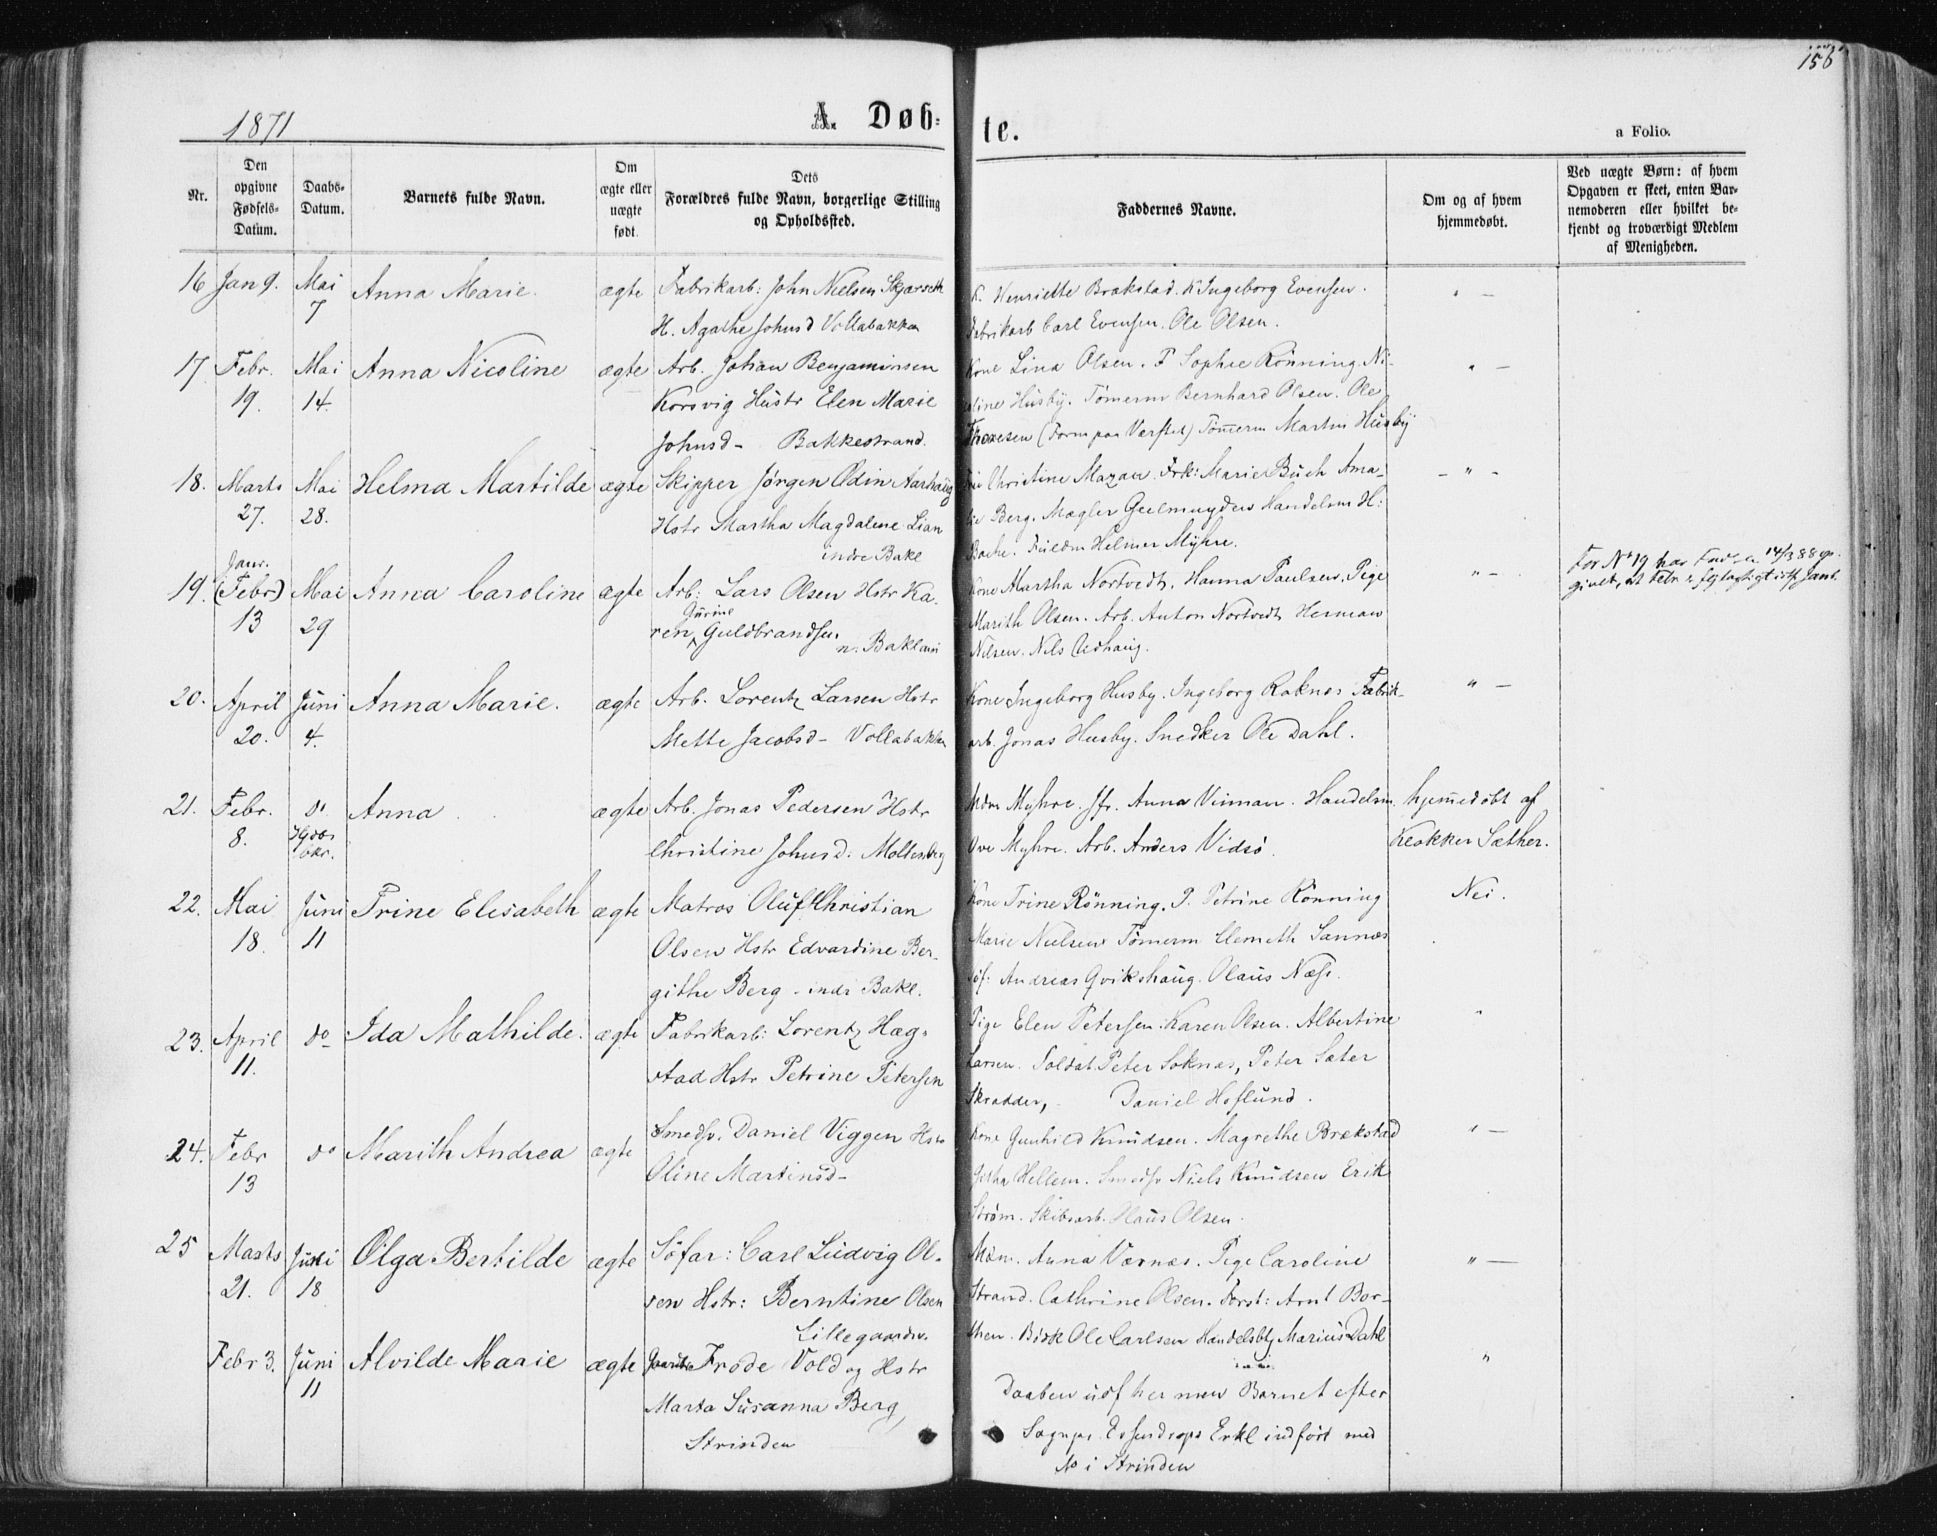 156
1871
A. Døb=
te.
a Folio.
Nr.
Den
opgivne
Fødsels-
Datum.
Daabs-
Datum.
Barnets fulde Navn.
Om
ægte eller
uægte
født.
Dets
Forældres fulde Navn, borgerlige Stilling
og Opholdssted.
Faddernes Navne.
Om og af hvem
hjemmedøbt.
Ved uægte Børn: af hvem
Opgaven er skeet, enten Bar-
nemoderen eller hvilket be-
kjendt og troværdigt Medlem
af Menigheden.
16 Jan 9. Mai Anna Marie. ægte Fabrikarb: John Nielsen Skjærseth K. Henriette Brækstad. K Ingeborg Evensen. " —
7 H. Agathe Johnsd Vollabakken Fabrikarb Carl Evensen. Ole Olsen.
17 Febr. Mai Anna Nicoline ægte Arb. Johan Benjaminsen Kone Lina Olsen. P Sophie Rönning Ni- " —
19. 14. Korsvig Hustr Elen Marie coline Husby. Tömerm Bernhard Olsen. Ole
Johnsd- Bakkestrand. Thoresen (Form paa Verftet) Tömerm Martin Husby
18. Marts Mai Helma Martilde ægte Skipper Jørgen Odin Aarhaug Christine Mazau. Frk: Marie Buch Ama- – " –
27. 28. Hstr Martha Magdalene Lian lie Berg. Mægler Geelmuyden Handelsm H:
indre Bakl Bache. Fuldm Helmer Myhre.
Janr.
19. (Febr) Mai Anna Caroline ægte Arb: Lars Olsen Hstr Ka- Kone Martha Nortvedt, Hanna Paulsen, Pige " – For No 19 har Fad. 14/3 88 op-
givet, at Febr. er feilagtigt istf. Janr.
13 29 Gurine
ren Guldbrandsen. n. Baklan Marith Olsen. Arb. Anton Nortvedt Herman
Nilsen. Nils Udhaug.
20. April Juni Anna Marie. ægte Arb. Lorentz Larsen Hstr Kone Ingeborg Husby. Ingeborg Roknes Fabrik- " —
20. 4. Mette Jacobsd- Vollabakken arb. Jonas Husby. Snedker Ole Dahl.
21. Febr. do Anna ægte Arb. Jonas Pedersen Hstr Mdm Myhre. Jfr. Anna Vinman. Handelsm. hjemmedöbt af
8. Christine Johnsd: Mollenberg Ove Myhre. Arb. Anders Vidsö. Klokker Sæther.
22. Mai Juni Trine Elisabeth ægte Matros Oluf Christian Kone Trine Rönning. P. Petrine Rönning Nei.
18. 11 Olsen Hstr Edvardine Ber- Marie Nielsen Tömerm Clemeth Sannæs
githe Berg - indr Bakl. Söf: Andreas Qvikshaug. Olaus Næss.
23. April do Ida Mathilde. ægte Fabrikarb: Lorentz Hæg- Pige Elen Petersen. Karen Olsen. Albertine "
11. stad Hstr Petrine Petersen Larsen. Soldat Peter Soknæs, Peter Sæter
Skrædder, Daniel Hoflund.
24. Febr do Marith Andrea ægte Smedsv. Daniel Viggen Hstr Kone Gunhild Knudsen. Magrethe Brækstad " —
13 Oline Martinsd- Hellem. Smedsv Niels Knudsen Erik
Ström. Skibsarb. Haus Olsen.
25 Marts Juni Olga Bertilde ægte Söfar: Carl Ludvig Ol- Mdm. Anna Værnæs. Pige Caroline " —
21. 18 sen Hstr: Berntine Olsen Strand. Cathrine Olsen. Forst: Arnt Bor-
Lillegaardsv. then. Ole Carlsen Handelsbtj Marius Dahl
Febr 3. Juni Alvilde Marie ægte Frode Vold og Hstr "
11 Marta Susanna Berg, Daaben udf her men Barnet efter
Strinden Sognpr. Essendrops Erkl indfört med
No i Strinden